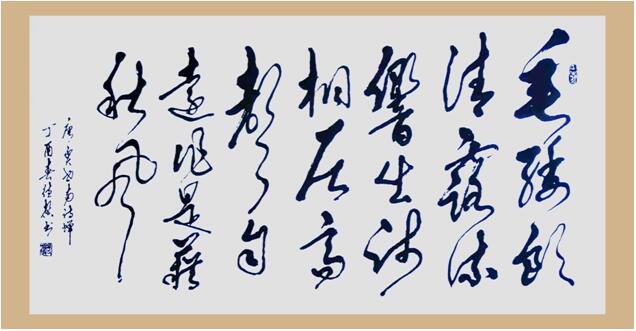 垂緌飲
清露流
響出疏
桐居高
聲自
遠非是藉
秋風
唐·虞世南詩蟬
丁酉春书